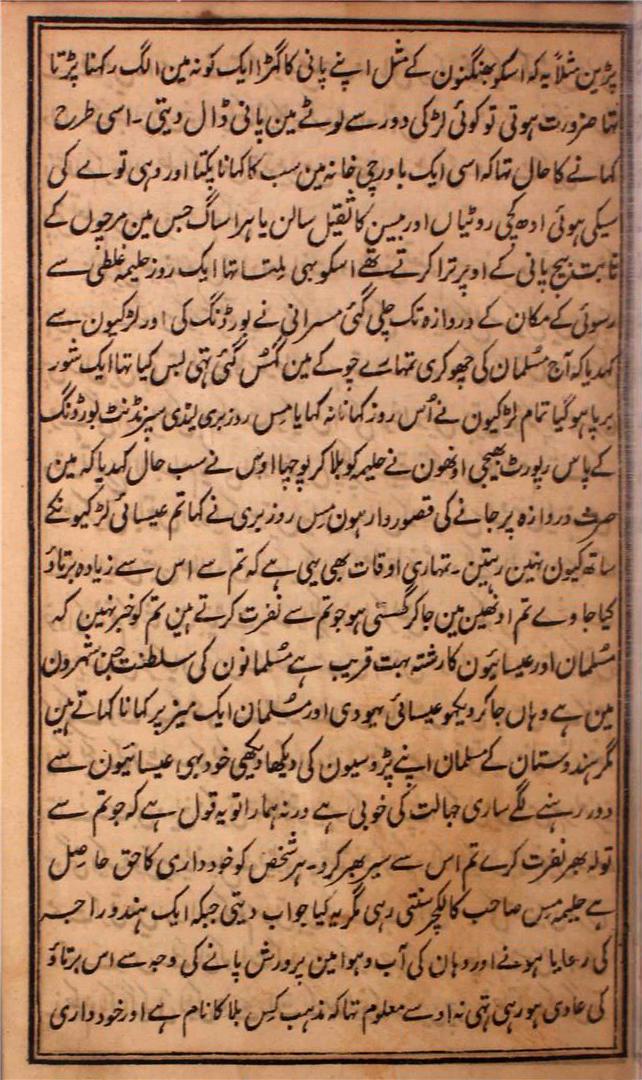 پڑین مثلاً یہ کہ اسکو بھنگنون کے مثل اپنے پانی کا گھڑا ایک کونہ مین الگ رکھنا پڑتا
تھا ضرورت ہوتی تو کوئی لڑکی دور سے لوٹے مین پانی ڈال دیتی۔ اسی طرح
کھانے کا حال تھا کہ اسی ایک باورچی خانہ مین سب کا کھانا پکتا اور وہی توے کی
سیکی ہوئی ادھ کچی روٹیاں اور بیسن کا ثقیل سالن یا ہرا ساگ جس مین مرچوں کے
ثابت بیج پانی کے اوپر ترا کرتے تھے اسکو بھی ملتا تھا ایک روز حلیمہ غلطی سے
رسوئی کے مکان کے دروازہ تک چلی گئی مسرانی نے بورڈنگ کی اور لڑکیون سے
کہدیا کہ آج مسلمان کی چھوکری تمہارے چوکے مین گھس گئی تھی بس کیا تھا ایک شور
برپا ہو گیا تمام لڑکیون نے اُس روز کھانا نہ کھایا مِس روزبری لیڈی سپرنڈنٹ بورڈنگ
کے پاس رپورٹ بھیجی اونھون نے حلیمہ کو بلا کر پوچھا اوس نے سب حال کہدیا کہ مین
صرف دروازہ پر جانے کی قصوروار ہون مِس روزبری نے کہا تم عیسائی لڑکیونکے
ساتھ کیون نہین رہتین۔ تمہاری اوقات بھی یہی ہے کہ تم سے اس سے زیادہ برتاؤ
کیا جاوے تم اونھین مین جا کر گھستی ہو جو تم سے نفرت کرتے ہین تم کو خبر نہین کہ
مسلمان اور عیسائیون کا رشتہ بہت قریب ہے مسلمانون کی سلطنت جن شہرون
مین ہے وہاں جا کر دیکھو عیسائی یہودی اور مسلمان ایک میز پر کھانا کھاتے ہین
مگر ہندوستان کے مسلمان اپنے پڑوسیون کی دیکھا دیکھی خود بھی عیسائیون سے
دور رہنے لگے ساری جہالت کی خوبی ہے ورنہ ہمارا تو یہ قول ہے کہ جو تم سے
تولہ بھر نفرت کرے تم اس سے سیر بھر کرو۔ ہر شخص کو خودداری کا حق حاصل
ہے حلیمہ مِس صاحب کا لکچر سنتی رہی مگر یہ کیا جواب دیتی جبکہ ایک ہندو راجہ
کی رعایا ہونے اور وہان کی آب وہوا مین پرورش پانے کی وجہ سے اس برتاؤ
کی عادی ہو رہی تھی نہ اوسے معلوم تھا کہ مذہب کِس بلا کا نام ہے اور خودداری